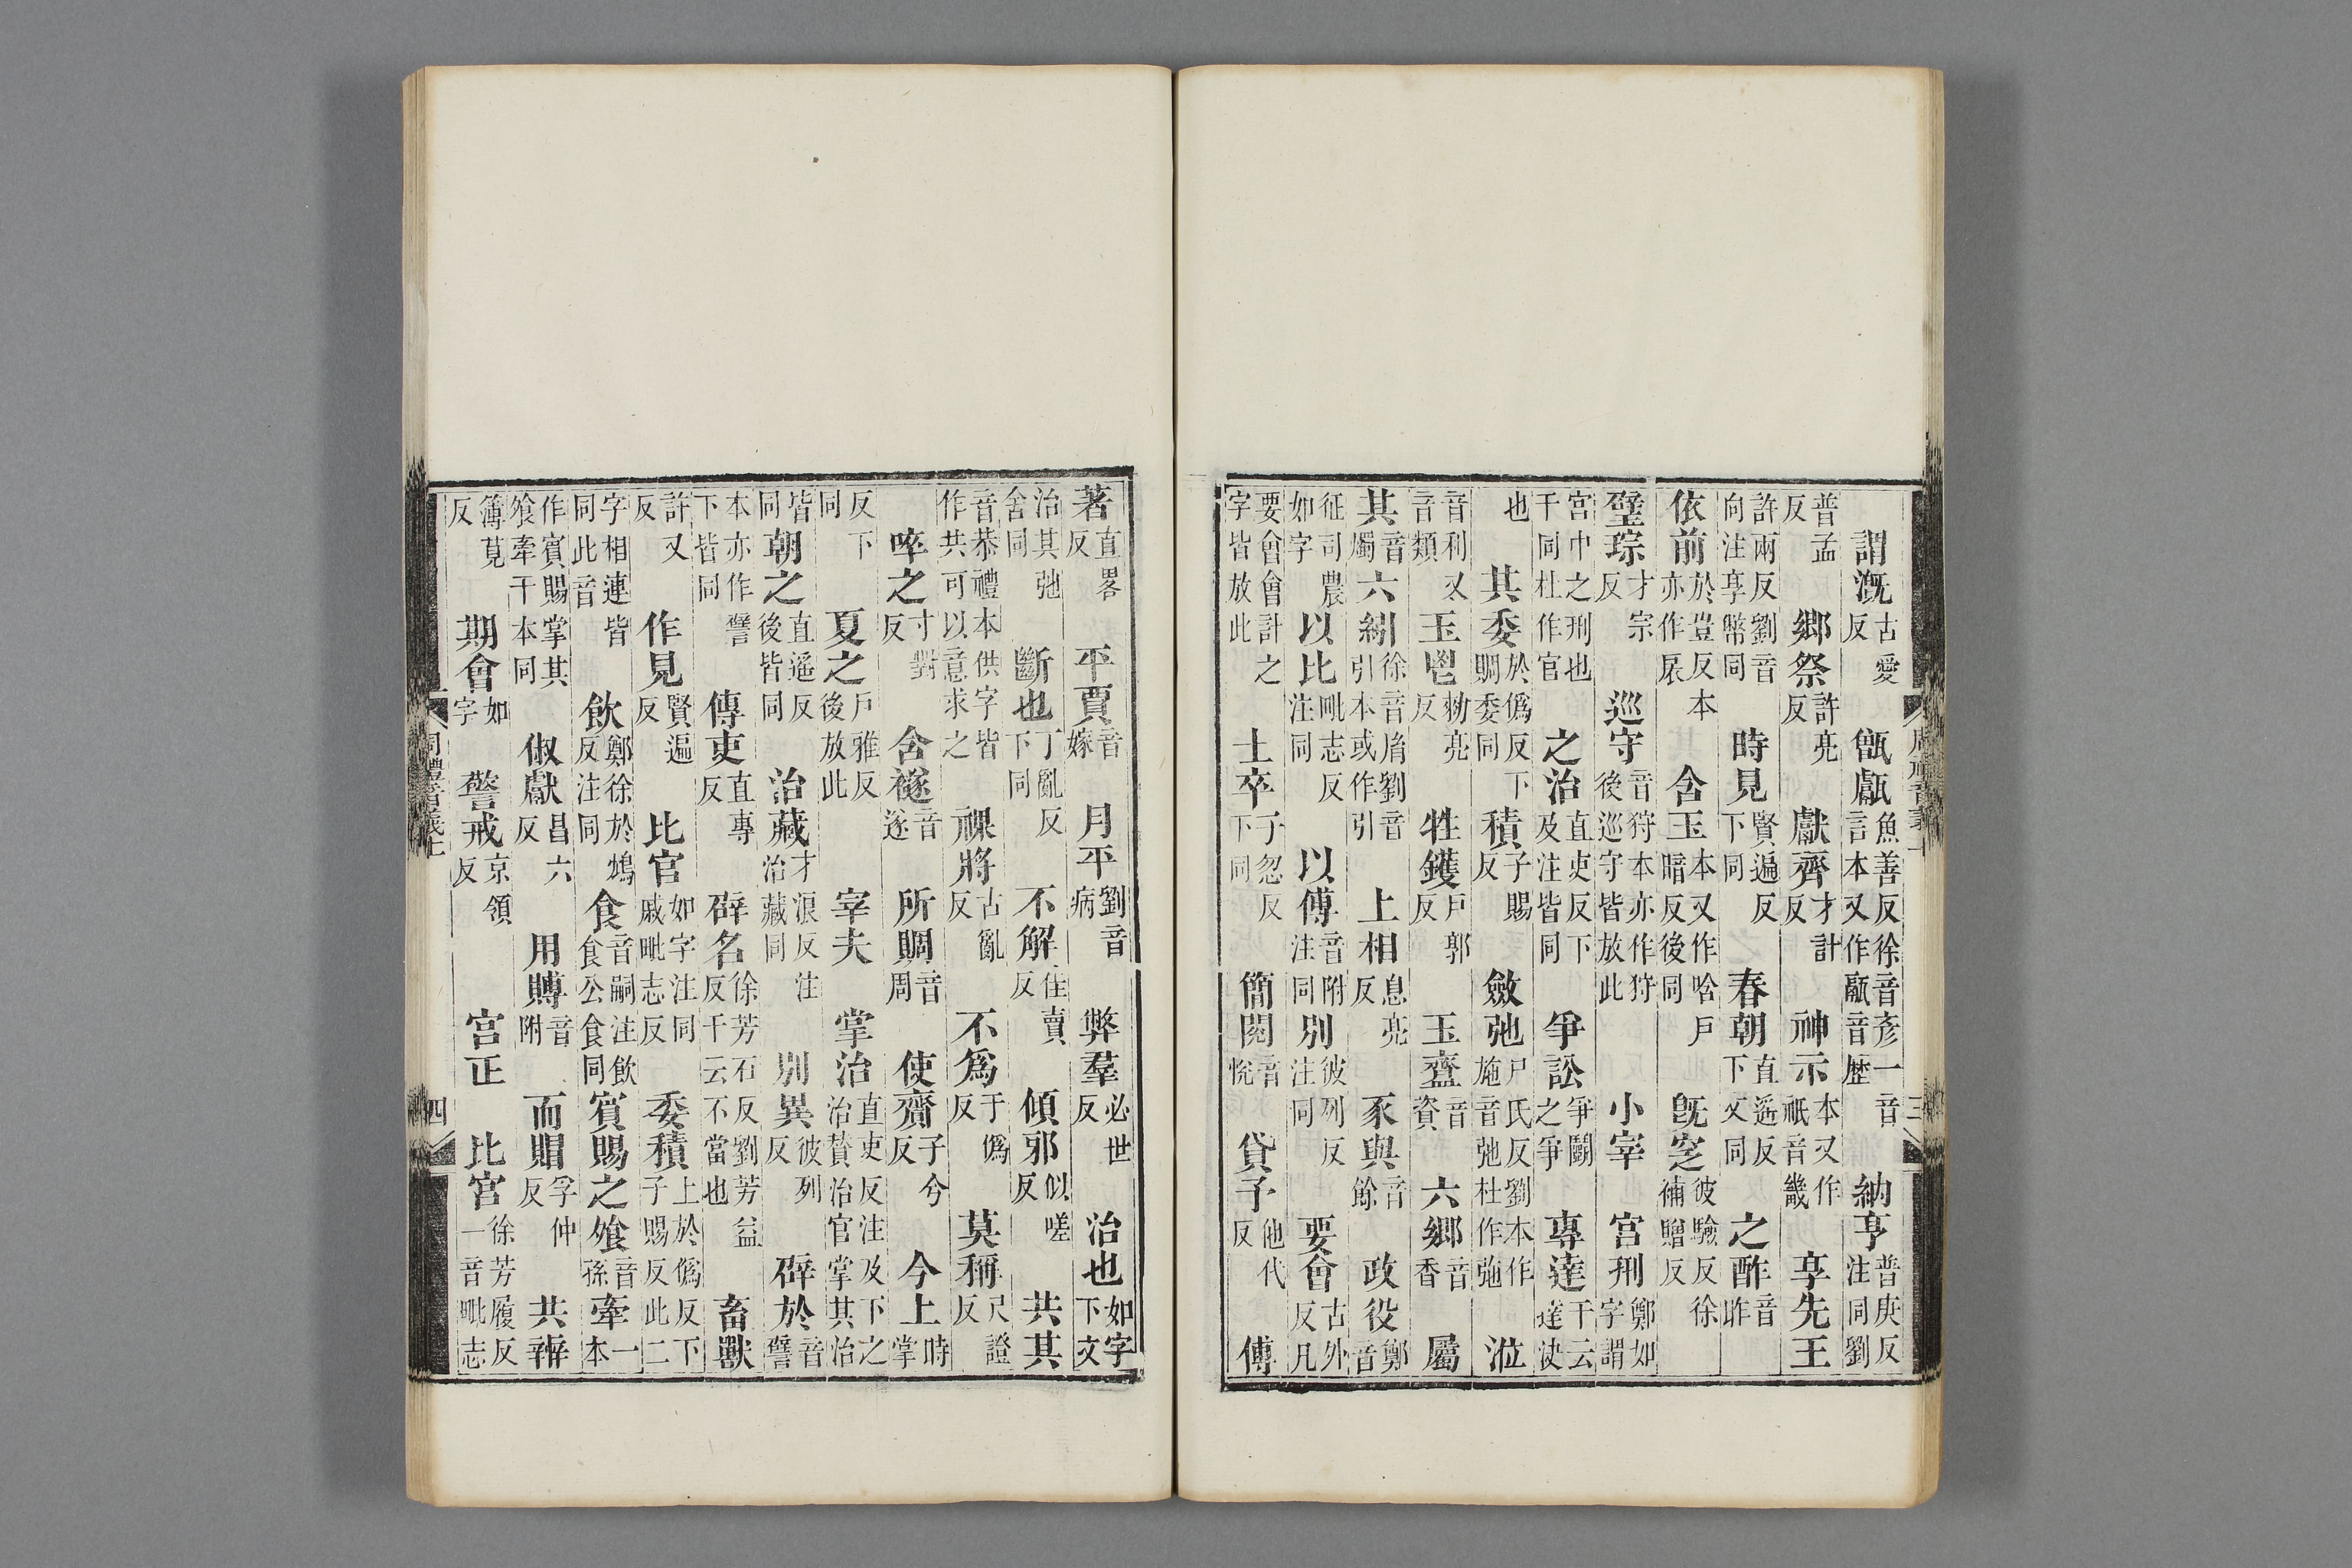 周禮音義上 三
謂漑古愛反 甑甗魚善反徐音彥一音言本又作音歴 納亨普庚反注同劉
普孟反 鄉祭許亮反 獻齊才計反 神示本又作祇音畿 享先王
許兩反劉音向注享幣同 時見賢遍反下同 春朝直遥反下文同 之酢音昨
依前於豈反本亦作扆 含玉本又作唅戸暗反後同 旣窆彼驗反徐補贈反
璧琮才宗反 巡守音狩本亦作狩後巡守皆放此 小宰 宮刑鄭如字謂
宮中之刑也干同杜作官 之治直吏反下及注皆同 爭訟爭鬭之爭 專達干云達决
也 其委於僞反下賙委同 積子賜反 斂弛尸氏反劉本作施音弛杜作弛 涖
音利又音類 玉鬯勑亮反 牲鑊戸郭反 玉齍音資 六鄉音香 屬
其音燭 六紖徐音胤劉音引本或作引 上相息亮反 豕與音餘 政役鄭音
征司農如字 以比毗志反注同 以傅音附注同 別彼列反注同 要會古外反凡
要會會計之字皆放此 士卒子忽反下同 簡閱音悅 貸子他代反 傅
著直畧反 平賈音嫁 月平劉音病 弊羣必世反 治也如字下文
治其弛舍同 斷也丁亂反下同 不解佳賣反 傾邪似嗟反 共其
音恭禮本供字皆作共可以意求之 祼將古亂反 不爲于僞反 莫稱尺證反
啐之寸對反 含襚音遂 所賙音周 使齎子兮反 今上時掌
反下同 夏之戸雅反後放此 宰夫 掌治直吏反注及下之治贊治官掌其治
皆同 朝之直遥反後皆同 治藏才浪反注治藏同 別異彼列反 辟於音譬
本亦作譬下皆同 傳吏直專反 辟名徐芳石反劉芳益反干云不當也 畜獸
許又反 作見賢遍反 比官如字注同戚毗志反 委積上於僞反下子賜反此二
字相連皆同此音 飲鄭徐於鴆反注同 食音嗣注飲食公食同 賓賜之飧音孫 牽一本
作賓賜掌其飧牽干本同 俶獻昌六反 用賻音附 而賵孚仲反 共辨
簿莧反 期會如字 警戒京領反 宮正 比宮徐芳履反一音毗志
周禮音義上 四